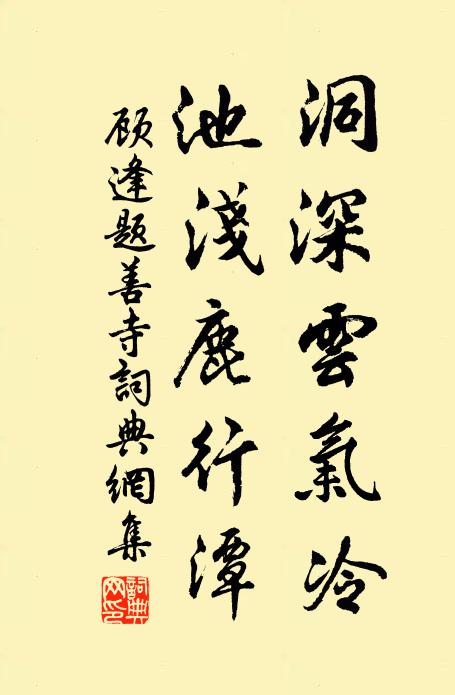 洞深雲氣冷
池淺鹿行潭
顧逢題善寺詞典網集
詞典网印